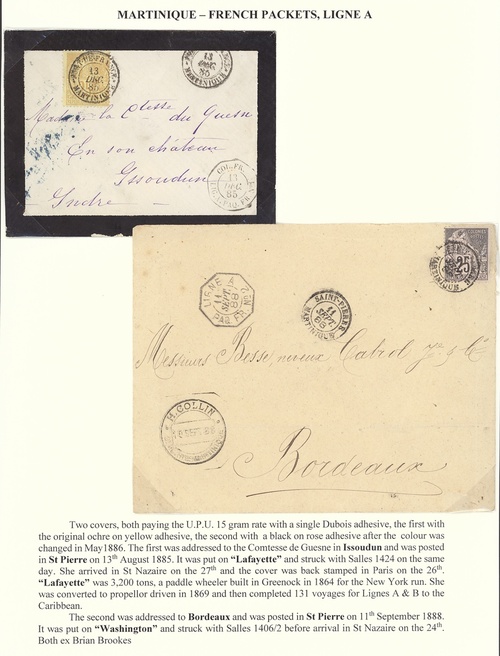 MARTINIQUE – FRENCH PACKETS, LIGNE A
FORT-DE-FRANCE
13
DEC.
85
MARTINIQUE
13
DEC.
85
MARTINIQUE
Madame la Ctesse du Quesn
En son château
Issoudun
Indre
COL. FR.
13
DEC.
85
PAQ. FR.
25
MARTINIQUE
LIGNE A
11
SEPT.
88
PAQ. FR. No 2
SAINT-PIERRE
11
SEPT.
88
MARTINIQUE
Messieurs Besse, neveux Cabrol Jne & Cie
H. COLLIN
Bordeaux
Two covers, both paying the U.P.U. 15 gram rate with a single Dubois adhesive, the first with
the original ochre on yellow adhesive, the second with a black on rose adhesive after the colour was
changed in May1886. The first was addressed to the Comtesse de Guesne in Issoudun and was posted
in St Pierre on 13th August 1885. It was put on "Lafayette" and struck with Salles 1424 on the same
day. She arrived in St Nazaire on the 27th and the cover was back stamped in Paris on the 26th.
"Lafayette" was 3,200 tons, a paddle wheeler built in Greenock in 1864 for the New York run. She
was converted to propellor driven in 1869 and then completed 131 voyages for Lignes A & B to the
Caribbean.
The second was addressed to Bordeaux and was posted in St Pierre on 11th September 1888.
It was put on "Washington" and struck with Salles 1406/2 before arrival in St Nazaire on the 24th.
Both ex Brian Brookes